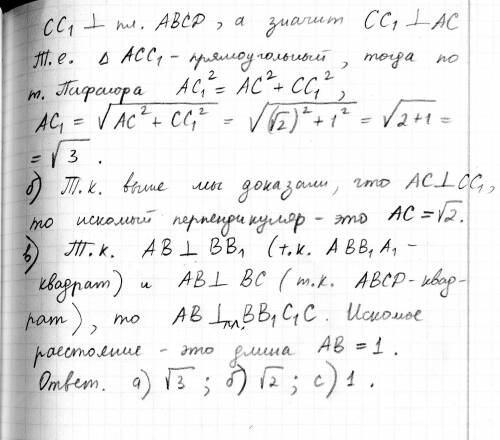 CC₁ ⊥ пл. ABCD, а значит CC₁ ⊥ AC
Т.е. △ ACC₁ - прямоугольный, тогда по
т. Пифагора AC₁² = AC² + CC₁²,
AC₁ = √(AC² + CC₁²) = √((√2)² + 1²) = √(2+1) =
= √3 .
б) Т.к. выше мы доказали, что AC⊥CC₁,
то искомый перпендикуляр - это AC = √2.
в) Т.к. AB ⊥ BB₁ (т.к. ABB₁A₁ -
квадрат) и AB⊥ BC (т.к. ABCD - квад-
рат), то AB ⊥ пл. BB₁C₁C. Искомое
расстояние - это длина AB = 1.
Ответ. а) √3 ; б) √2 ; с) 1 .